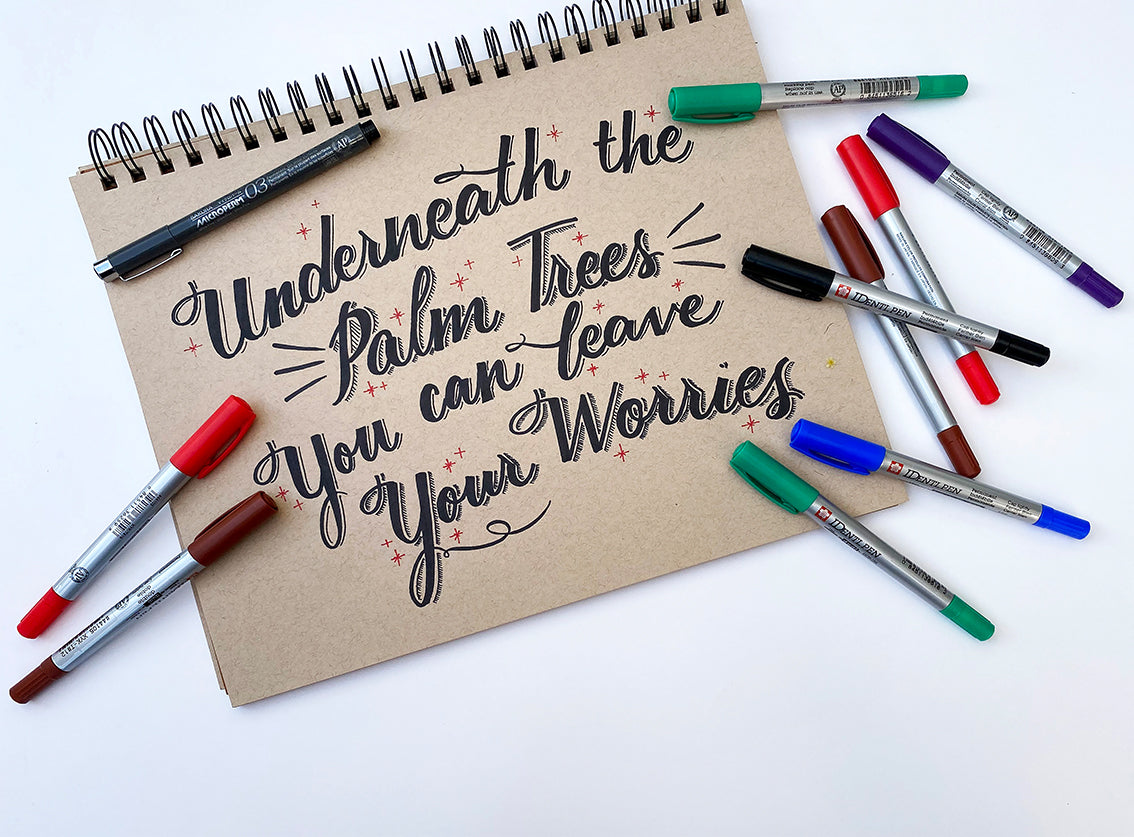 Underneath the
Palm Trees
You can leave
Your Worries
SAKURA
MICROPERM 03
AP
AP
IDENTI.PEN
IDENTI.PEN
IDENTI.PEN